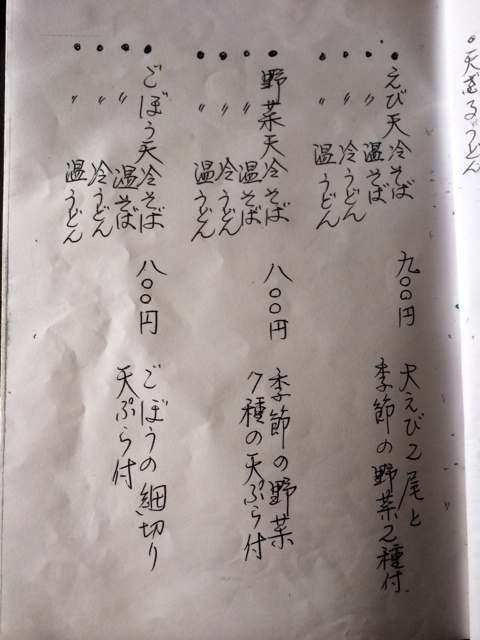 ・天ざるうどん
・えび天冷そば 九〇〇円 大えび2尾と
季節の野菜2種付
・〃 温そば
・〃 冷うどん
・〃 温うどん
・野菜天冷そば 八〇〇円 季節の野菜
7種の天ぷら付
・〃 温そば
・〃 冷うどん
・〃 温うどん
・ごぼう天冷そば 八〇〇円 ごぼうの細切り
天ぷら付
・〃 温そば
・〃 冷うどん
・〃 温うどん